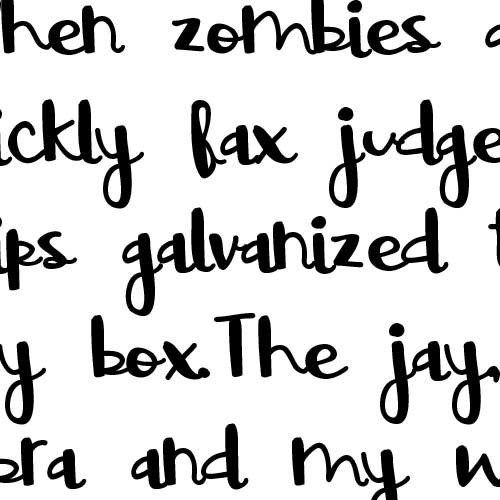 hen zombies a
ickly fax judge
ips galvanized t
y box.The jay,
bra and my w